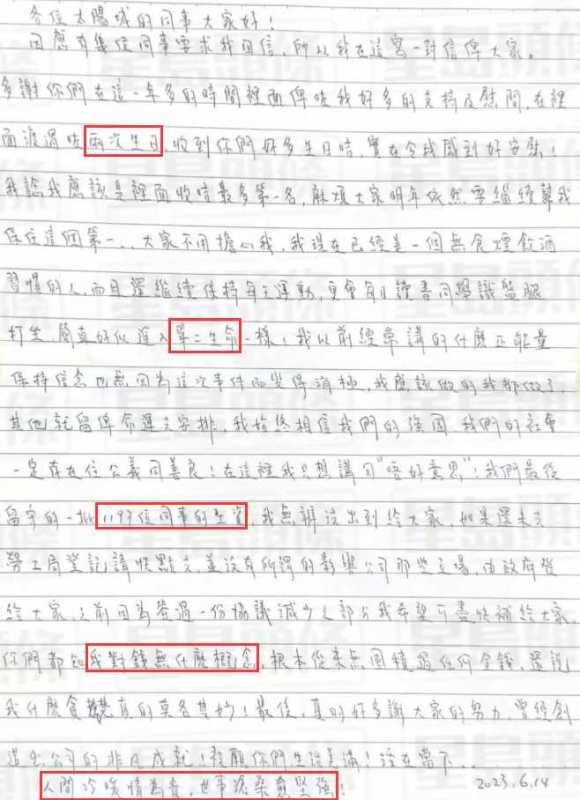 各位太陽城的同事大家好！
因應有幾位同事要求我回信，所以我在這寫一封信俾大家。
多謝你們在這一年多的時間裡面俾咗我好多的支持及慰問，在裡
面渡過咗兩次生日，收到你們好多生日咭，實在令我感到好安慰！
我諗我應該是裡面收咭最多第一名，麻煩大家明年依然要繼續幫我
保住這個第一..大家不用擔心我，我現在已經是一個無食煙飲酒
習慣的人，而且還繼續保持每天運動，更會每日讀書同學識盤腿
打坐，簡直好似進入第二生命一樣！我以前經常講的什麼正能量
保持信念也無因為這次事件而變得消極，我應該做的我都做了
其他就留俾命運去安排，我始終相信我們的強國，我們的社會
一定存在住公義同善良！在這裡我只想講句"唔好意思"！我們最後
留守的一批1197位同事的 ，我無辦法出到給大家，如果還未去
勞工局登記請快點去，並沒有所謂的影響公司那些立場，由政府發
給大家，之前因為簽過一份協議減少 部分我希望可盡快補給大家，
你們都知我對錢無什麼概念，根本從來無囤積過任何金錢，還說
我什麼貪 真的莫名其妙！最後，真的好多謝大家的努力，曾經創
造出公司的非凡成就！祝願你們生活美滿！活在當下...
人間冷暖情為香，世事滄桑愈堅強！
2023.6.14